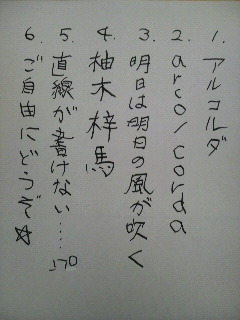 1. アルコルダ
2. arco/corda
3. 明日は明日の風が吹く
4. 柚木梓馬
5. 直線が書けない……orz
6. ご自由にどうぞ☆